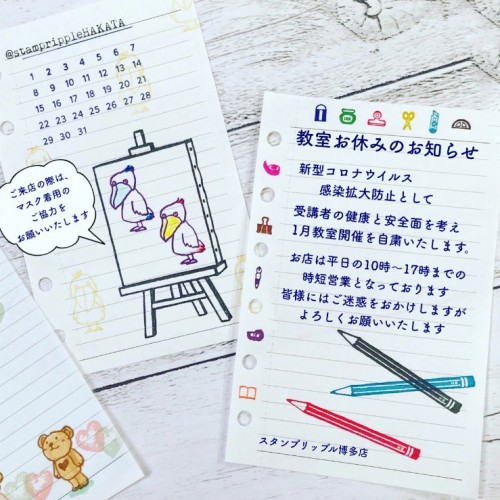 @stamprippleHAKATA
1 2 3 4 5 6 7
8 9 10 11 12 13 14
15 16 17 18 19 20 21
22 23 24 25 26 27 28
29 30 31
ご来店の際は、
マスク着用の
ご協力を
お願いいたします
教室お休みのお知らせ
新型コロナウイルス
感染拡大防止として
受講者の健康と安全面を考え
1月教室開催を自粛いたします。
お店は平日の10時〜17時までの
時短営業となっております
皆様にはご迷惑をおかけしますが
よろしくお願いいたします
スタンプリップル博多店